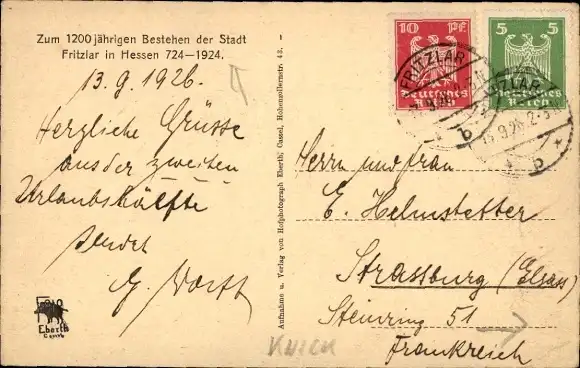 Zum 1200 jährigen Bestehen der Stadt
Fritzlar in Hessen 724—1924.
13.9.1926.
Herzliche Grüsse
aus der zweiten
Urlaubshälfte
sendet
Aufnahme u. Verlag von Hofphotograph Eberth, Cassel, Hohenzollernstr. 43. —
10 PF
Deutsches
Reich
5 5
Deutsches
Reich
FRITZLAR
b
Herrn und Frau
E. Helmstetter
Strassburg (Elsass)
Steinring 51
Frankreich
Eberth
Cassel
KNICK